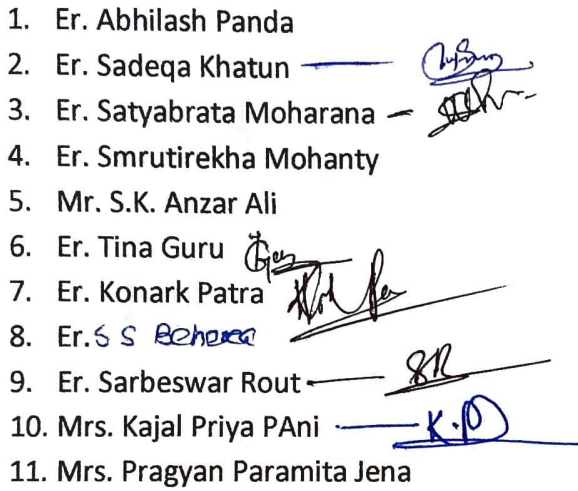 1. Er. Abhilash Panda
2. Er. Sadeqa Khatun
3. Er. Satyabrata Moharana
4. Er. Smrutirekha Mohanty
5. Mr. S.K. Anzar Ali
6. Er. Tina Guru
7. Er. Konark Patra
8. Er. S S Behera
9. Er. Sarbeswar Rout SR
10. Mrs. Kajal Priya PAni K.P
11. Mrs. Pragyan Paramita Jena